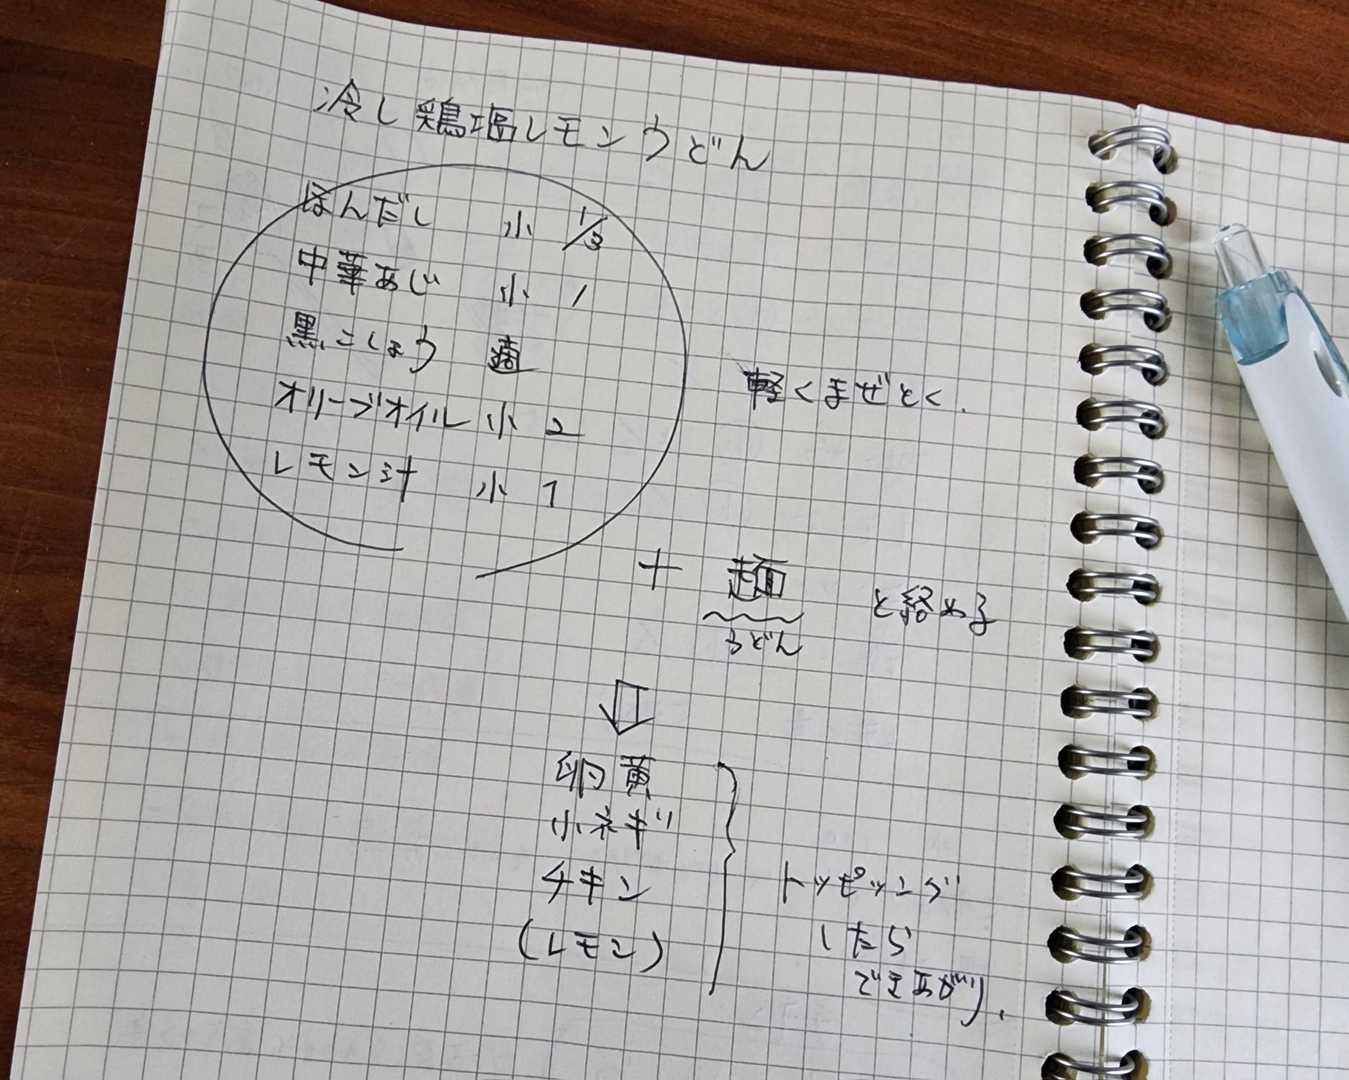 冷し鶏塩レモンうどん
ほんだし 小 1/3
中華あじ 小 1
黒こしょう 適
オリーブオイル 小 2
レモン汁 小 1
軽くまぜとく.
+ 麺 と絡める
うどん
卵黄
小ネギ
チキン
(レモン)
トッピッング
したら
できあがり.